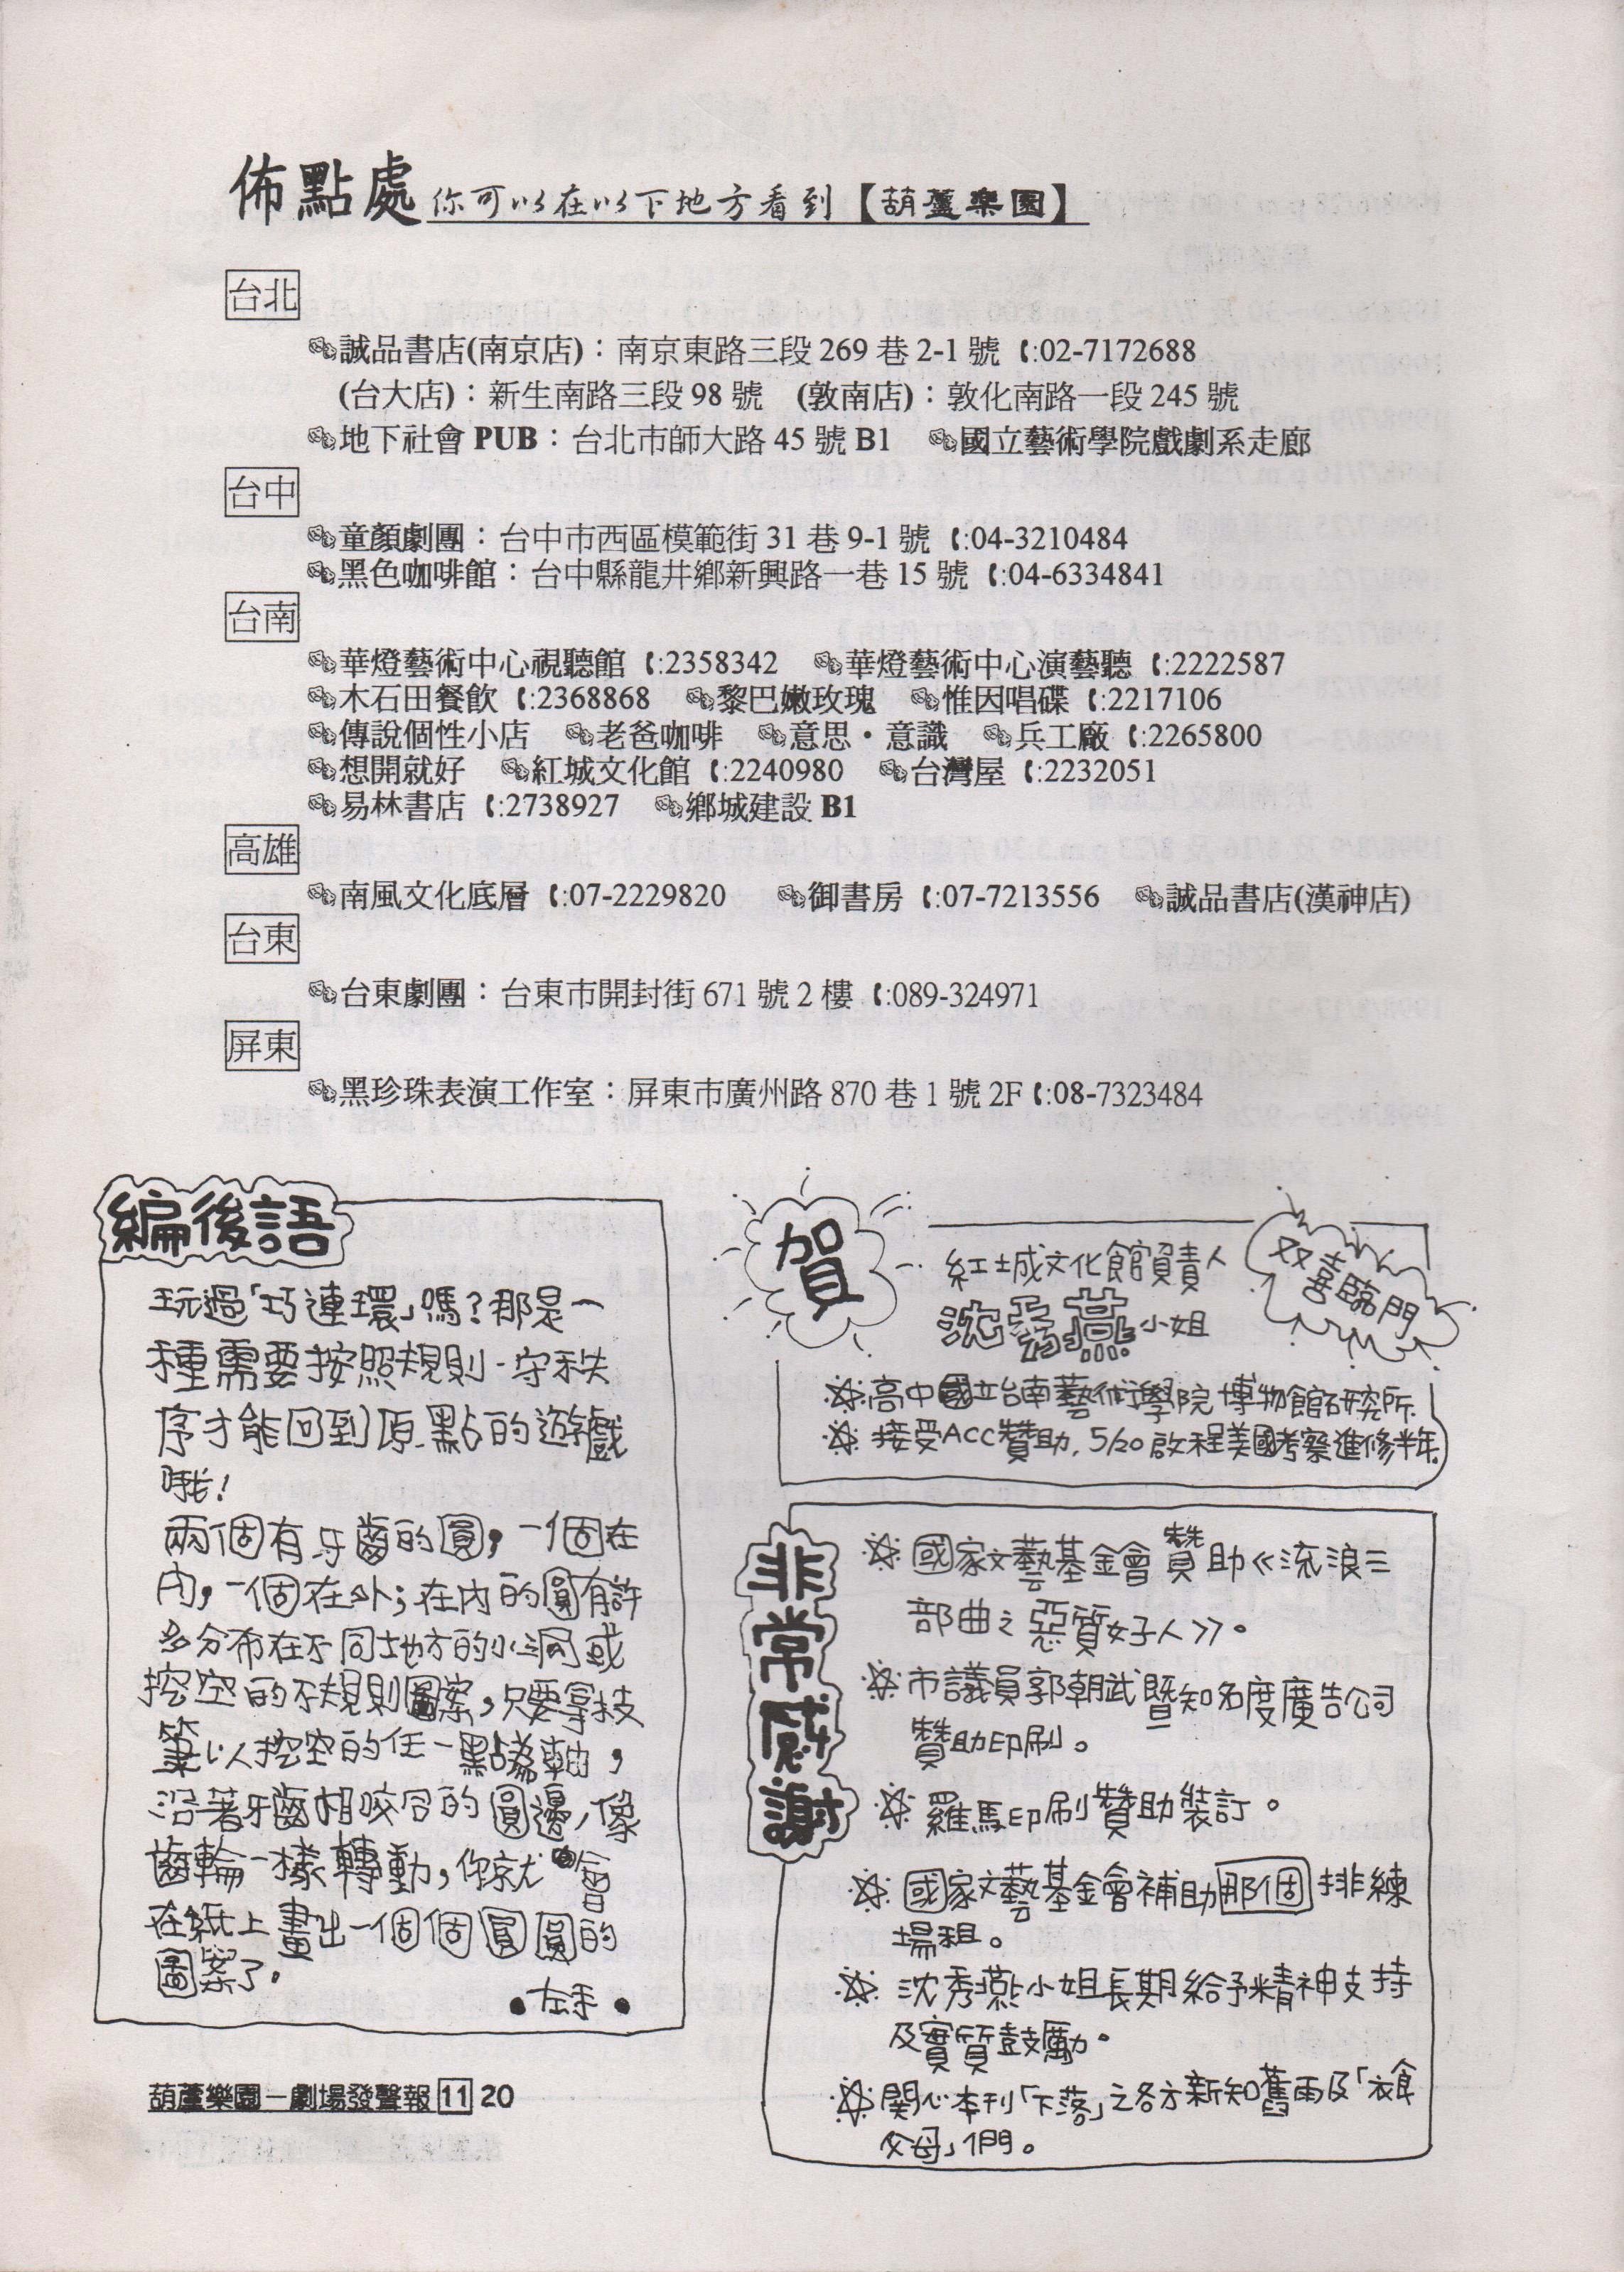 佈點處 你可以在以下地方看到【葫蘆樂園】
台北
誠品書店(南京店)：南京東路三段 269 巷 2-1 號 :02-7172688
(台大店)：新生南路三段 98 號 (敦南店)：敦化南路一段 245 號
地下社會 PUB：台北市師大路 45 號 B1 國立藝術學院戲劇系走廊
台中
童顏劇團：台中市西區模範街 31 巷 9-1 號 :04-3210484
黑色咖啡館：台中縣龍井鄉新興路一巷 15 號 :04-6334841
台南
華燈藝術中心視聽館 :2358342 華燈藝術中心演藝聽 :2222587
木石田餐飲 :2368868 黎巴嫩玫瑰 惟因唱碟 :2217106
傳說個性小店 老爸咖啡 意思・意識 兵工廠 :2265800
想開就好 紅城文化館 :2240980 台灣屋 :2232051
易林書店 :2738927 鄉城建設 B1
高雄
南風文化底層 :07-2229820 御書房 :07-7213556 誠品書店(漢神店)
台東
台東劇團：台東市開封街 671 號 2 樓 :089-324971
屏東
黑珍珠表演工作室：屏東市廣州路 870 巷 1 號 2F :08-7323484
編後語
玩過「巧連環」嗎？那是一
種需要按照規則、守秩
序才能回到原點的遊戲
哦！
兩個有牙齒的圓，一個在
內，一個在外；在內的圓有許
多分布在不同地方的小洞或
挖空的不規則圖案，只要拿枝
筆以挖空的任一點為軸，
沿著牙齒相咬合的圓邊，像
齒輪一樣轉動，你就會
在紙上畫出一個個圓圓的
圖案了。
•左手•
賀
紅城文化館負責人
沈秀燕小姐
双喜臨門
高中國立台南藝術學院博物館研究所.
接受ACC贊助, 5/20啟程美國考察進修半年.
非常感謝
國家文藝基金會贊助《流浪三
部曲之惡質好人》。
市議員郭朝武暨知名度廣告公司
贊助印刷。
羅馬印刷贊助裝訂。
國家文藝基金會補助那個排練
場租。
沈秀燕小姐長期給予精神支持
及實質鼓勵。
関心本刊「下落」之各方新知舊雨及「衣食
父母」們。
葫蘆樂園－劇場發聲報 11 20